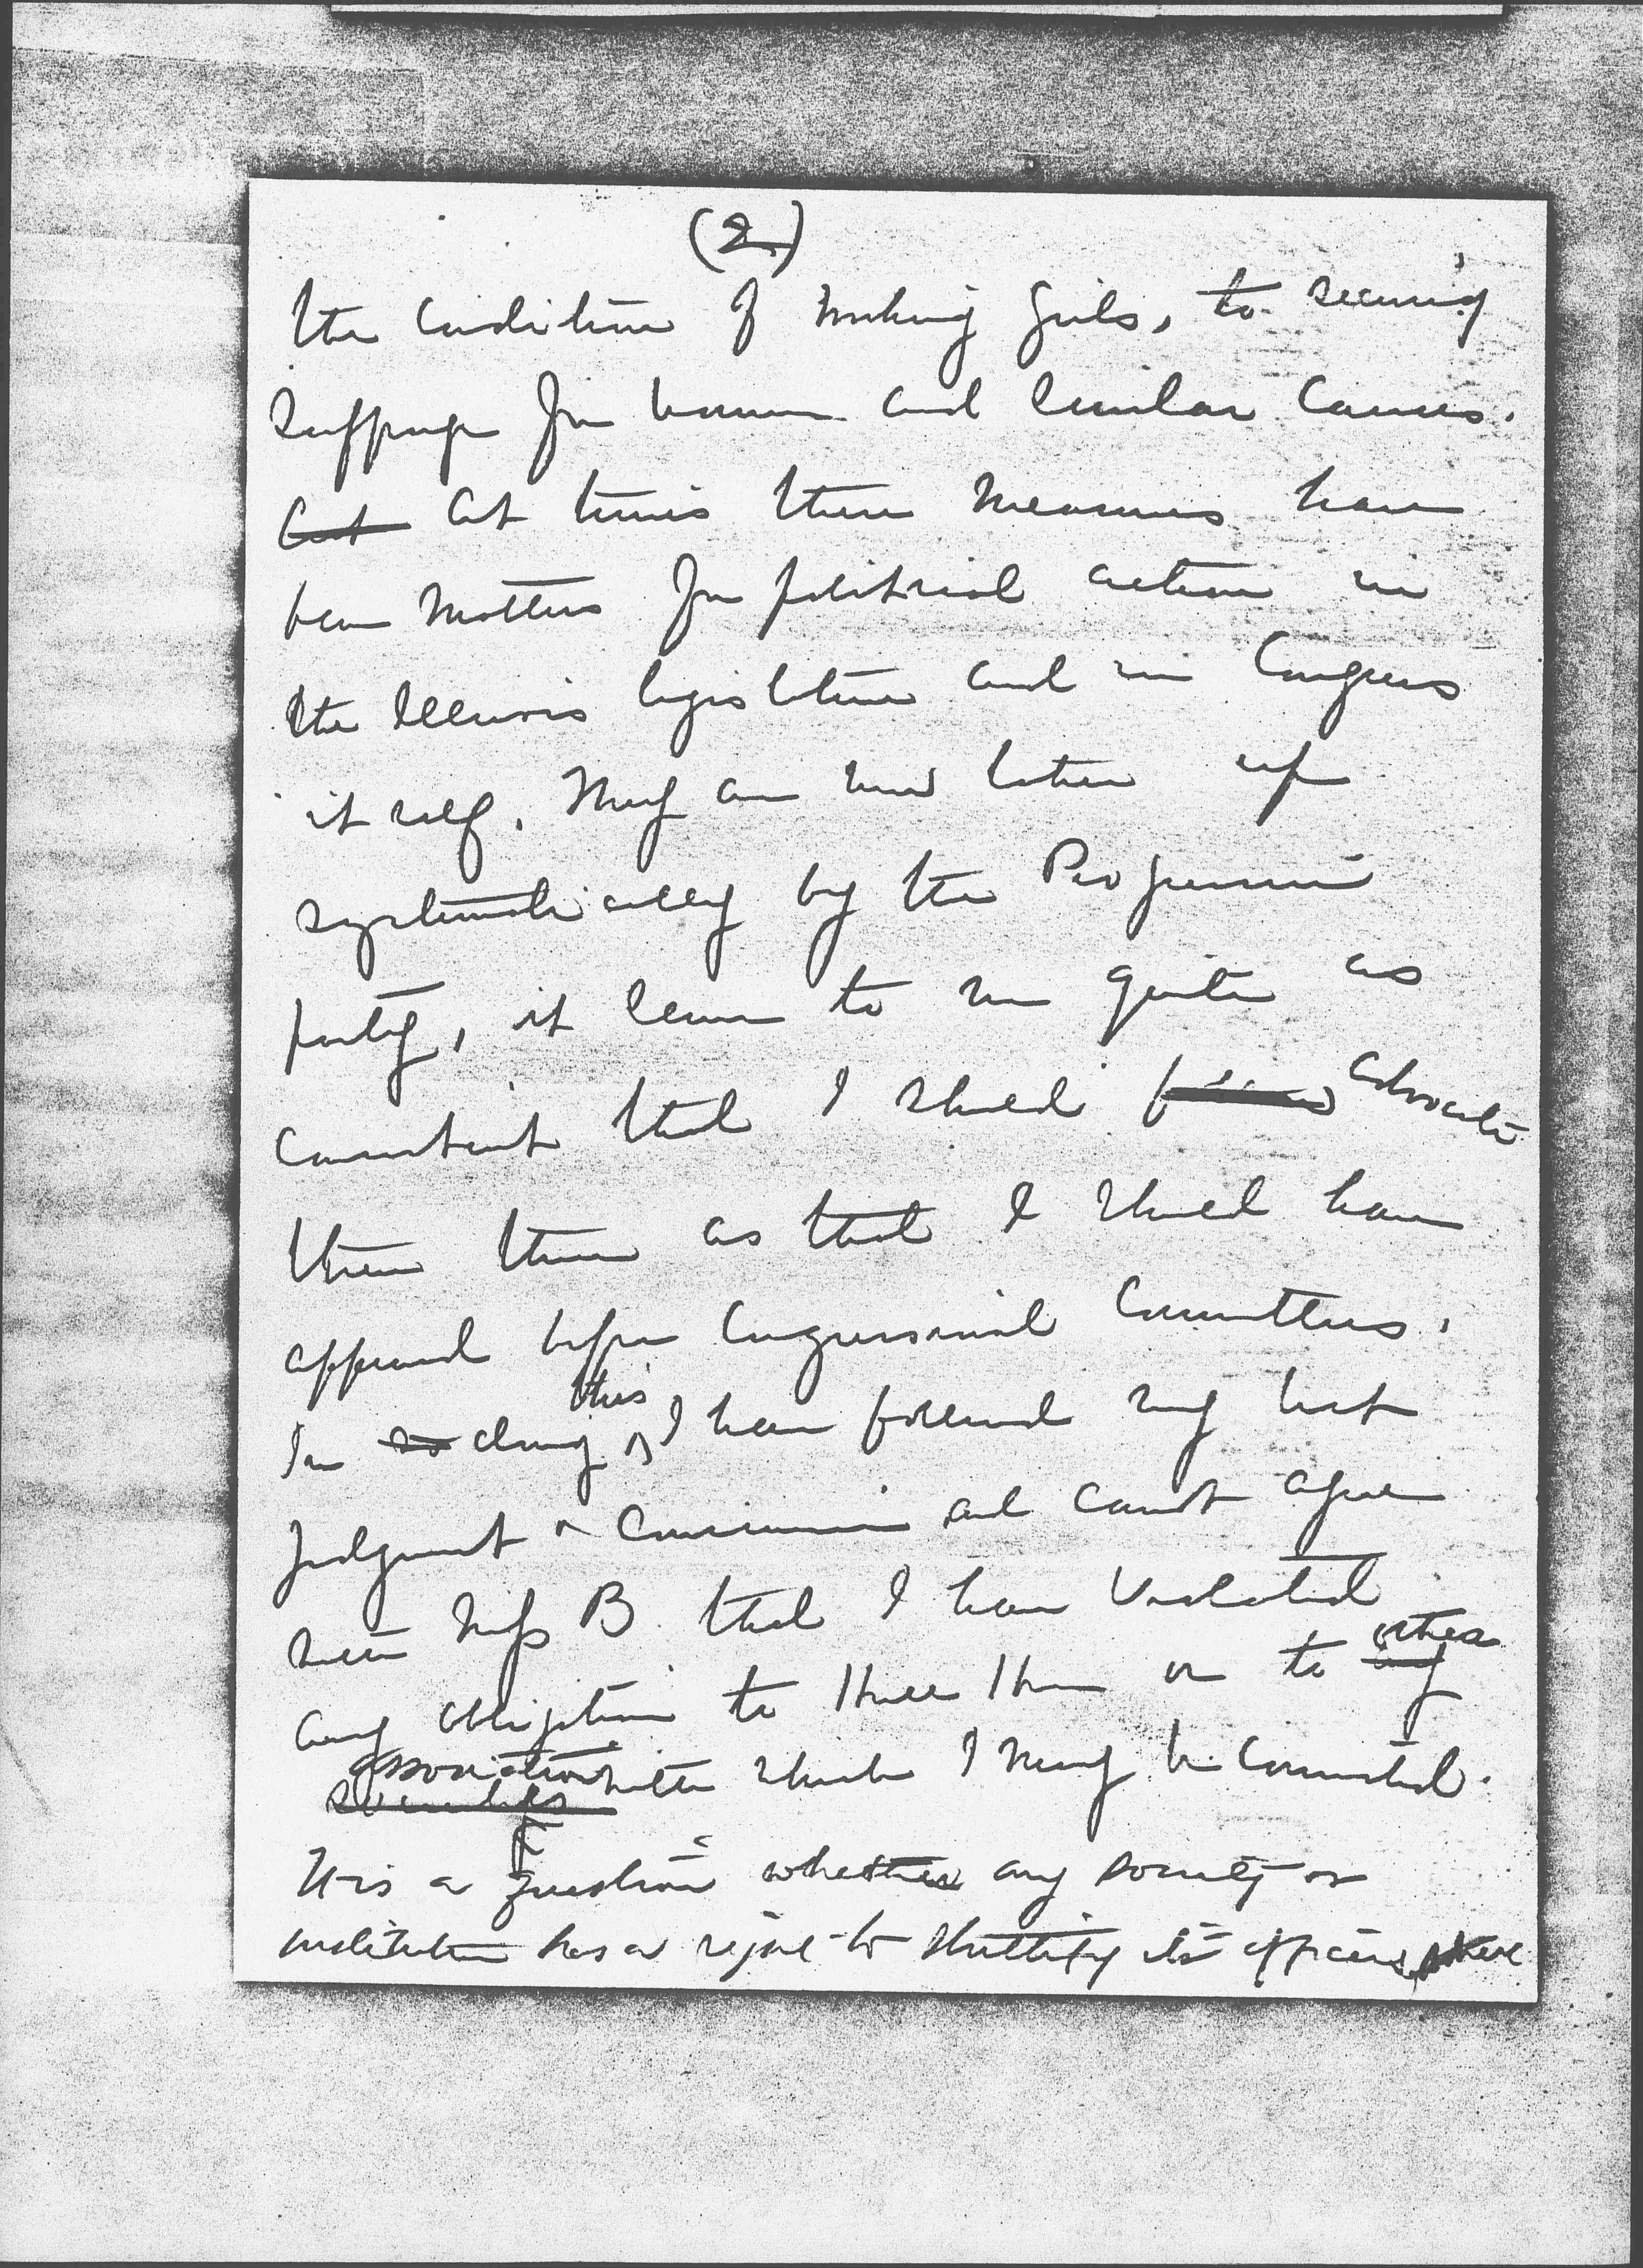 (2)
the condition of working girls, to securing
suffrage for women and similar causes.
But At times these measures have
been matters for political action in
the Illinois legislature and in Congress
itself. They are now taken up
systematically by the Progressive
party, it seems to me quite as
consistent that I should advocate
them there as that I should have
appeared before Congressional Committees.
In so doing this, I have followed my best
judgment & conscience and cannot agree
with Miss B. that I have violated
any obligation to Hull House or to any other
societies associations with which I may be connected.
It is a question whether any society or
institution has a right to stultify its officers